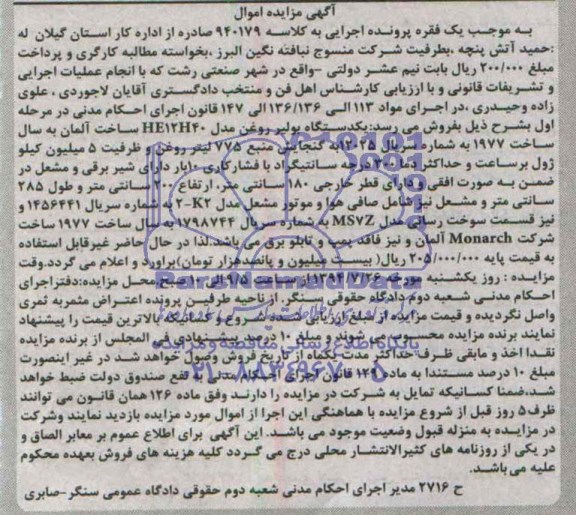 آگهی مزایده اموال
به موجب یک فقره پرونده اجرایی به کلاسه ۹۴۰۱۷۹ صادره از اداره کار استان گیلان له
:حمید آتش پنجه ،بطرفیت شرکت منسوج نبافته نگین البرز ،بخواسته مطالبه کارگری و پرداخت
مبلغ ۲۰۰/۰۰۰ ریال بابت نیم عشر دولتی -واقع در شهر صنعتی رشت که با انجام عملیات اجرایی
و تشریفات قانونی و با ارزیابی کارشناس اهل فن و منتخب دادگستری آقایان لاجوردی ، علوی
زاده وحیدری ،در اجرای مواد ۱۱۳ الی ۱۳۶/۱۳۶ الی ۱۴۷ قانون اجرای احکام مدنی در مرحله
اول بشرح ذیل بفروش می رسد:یکدستگاه بویلر روغن مدل HE۱۲H۴۰ ساخت آلمان به سال
ساخت ۱۹۷۷ به شماره سریال ۱۲۰۲۵ به گنجایش منبع ۷۷۵ لیتر روغن و ظرفیت ۵ میلیون کیلو
ژول برساعت و حداکثر دما ۳۰۰ درجه سانتیگراد با فشارکاری ۱۰بار دارای شیر برقی و مشعل در
ضمن به صورت افقی و دارای قطر خارجی ۱۸۰ سانتی متر، ارتفاع ۲۰۰ سانتی متر و طول ۲۸۵
سانتی متر و مشعل نیز شامل صافی هوا و موتور مشعل مدل K۲-۲ به شماره سریال ۱۴۵۶۴۴۱ و
نیز قسمت سوخت رسانی مدل MS۷Z به شماره سریال ۱۷۹۸۷۴۴ به سال ساخت ۱۹۷۷ ساخت
شرکت Monarch آلمان و نیز فاقد پمپ و تابلو برق می باشد.لذا در حال حاضر غیرقابل استفاده
به قیمت پایه ۲۰۵/۰۰۰/۰۰۰ ریال( بیست میلیون و پانصدهزار تومان)براورد و اعلام می گردد.وقت
مزایده : روز یکشنبه مورخه ۱۳۹۴/۷/۲۶ از ساعت ۹/۵ الی صبح محل مزایده:دفتراجرای
احکام مدنی شعبه دوم دادگاه حقوقی سنگر. از ناحیه طرفین پرونده اعتراض مثمربه ثمری
واصل نگردیده و قیمت مزایده از مبلغ ارزیابی شده شروع و کسانیکه بالاترین قیمت را پیشنهاد
نمایند برنده مزایده محسوب می شوند و مبلغ ۱۰ درصد پیشنهادی فی المجلس از برنده مزایده
نقدا اخذ و مابقی ظرف حداکثر مدت یکماه از تاریخ فروش وصول خواهد شد در غیر اینصورت
مبلغ ۱۰ درصد مستندا به ماده ۱۲۹ قانون اجرای احکام مدنی به نفع صندوق دولت ضبط خواهد
شد،ضمنا کسانیکه تمایل به شرکت در مزایده را دارند وفق ماده ۱۲۶ همان قانون می توانند
ظرف ۵ روز قبل از شروع مزایده با هماهنگی این اجرا از اموال مورد مزایده بازدید نمایند وشرکت
در مزایده به منزله قبول وضعیت موجود می باشد. این آگهی برای اطلاع عموم بر معابر الصاق و
در یکی از روزنامه های کثیرالانتشار محلی درج می گردد کلیه هزینه های فروش بعهده محکوم
علیه می باشد.
ح ۲۷۱۶ مدیر اجرای احکام مدنی شعبه دوم حقوقی دادگاه عمومی سنگر-صابری
ParsNamadData
۰۲۱-۸۸۳۴۹۶۷۰-۵